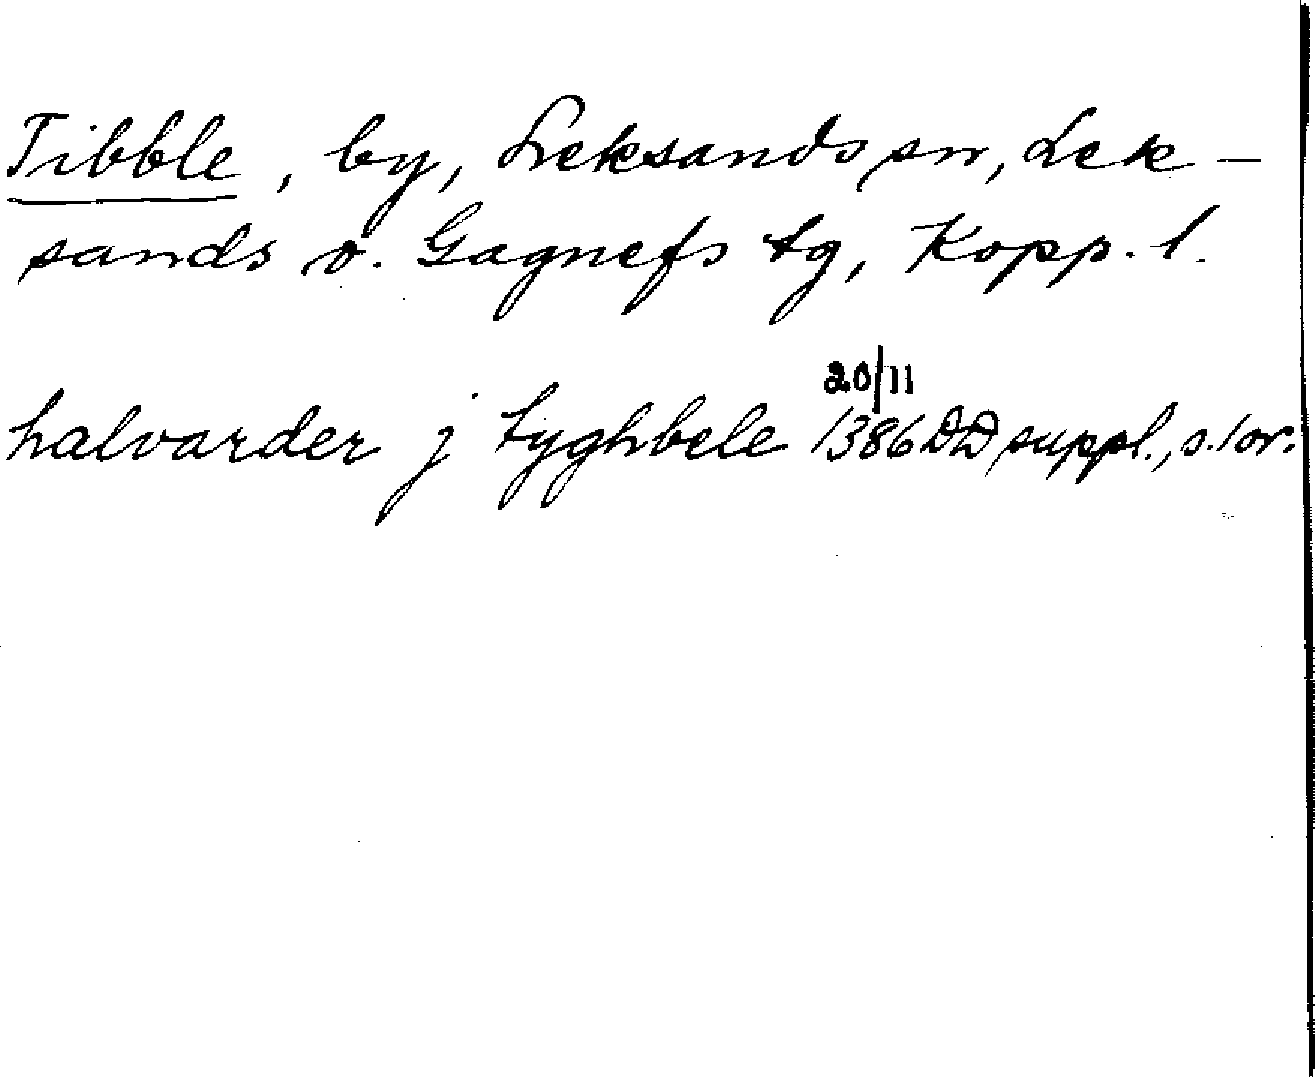 Tibble, by, Leksands sn, Lek-
sands o. Gagnefs tg, Kopp. l.
20/11
halvarder j tyghbele 1386 DD suppl., s. 1 or.